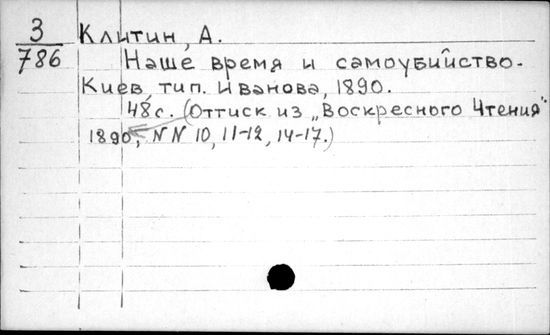 3 Клитин, А.
786 Наше время и самоубийство.
Киев, тип. Иванова, 1890.
48 с. (Оттиск из „Воскресного Чтения"
1890, NN 10, 11-12, 14-17.)